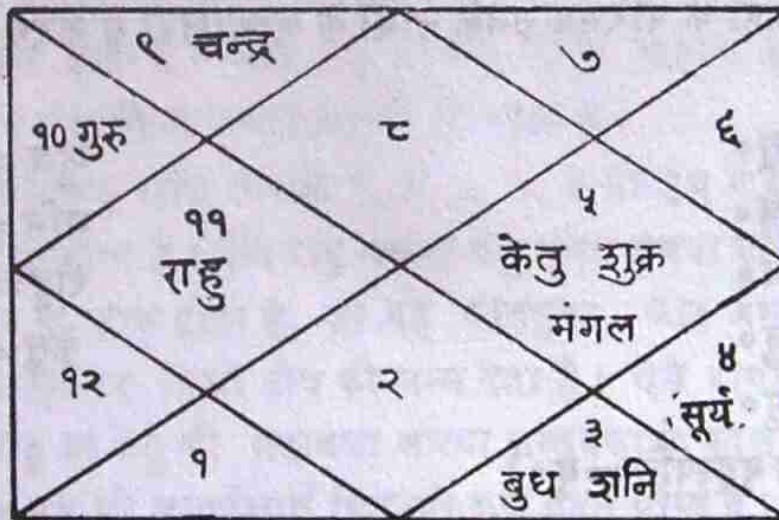 ९ चन्द्र
७
१० गुरु
८
६
११
राहु
५
केतु शुक्र
मंगल
१२
२
४
सूर्य
१
३
बुध शनि